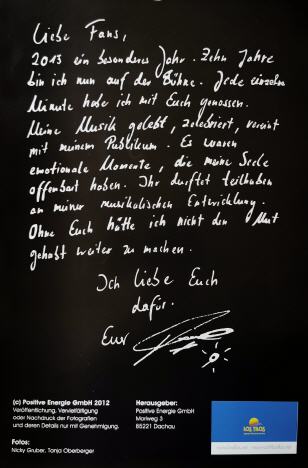 Liebe Fans,
2013 ein besonderes Jahr. Zehn Jahre
bin ich nun auf der Bühne. Jede einzelne
Minute habe ich mit Euch genossen.
Meine Musik gelebt, zelebriert, vereint
mit meinem Publikum. Es waren
emotionale Momente, die meine Seele
offenbart haben. Ihr durftet teilhaben
an meiner musikalischen Entwicklung.
Ohne Euch hätte ich nicht den Mut
gehabt weiter zu machen.
Ich liebe Euch
dafür.
Euer
(c) Positive Energie GmbH 2012
Veröffentlichung, Vervielfältigung
oder Nachdruck der Fotografien
und deren Details nur mit Genehmigung.
Fotos:
Nicky Gruber, Tanja Oberberger
Herausgeber:
Positive Energie GmbH
Mariweg 3
85221 Dachau
LOS TAOS